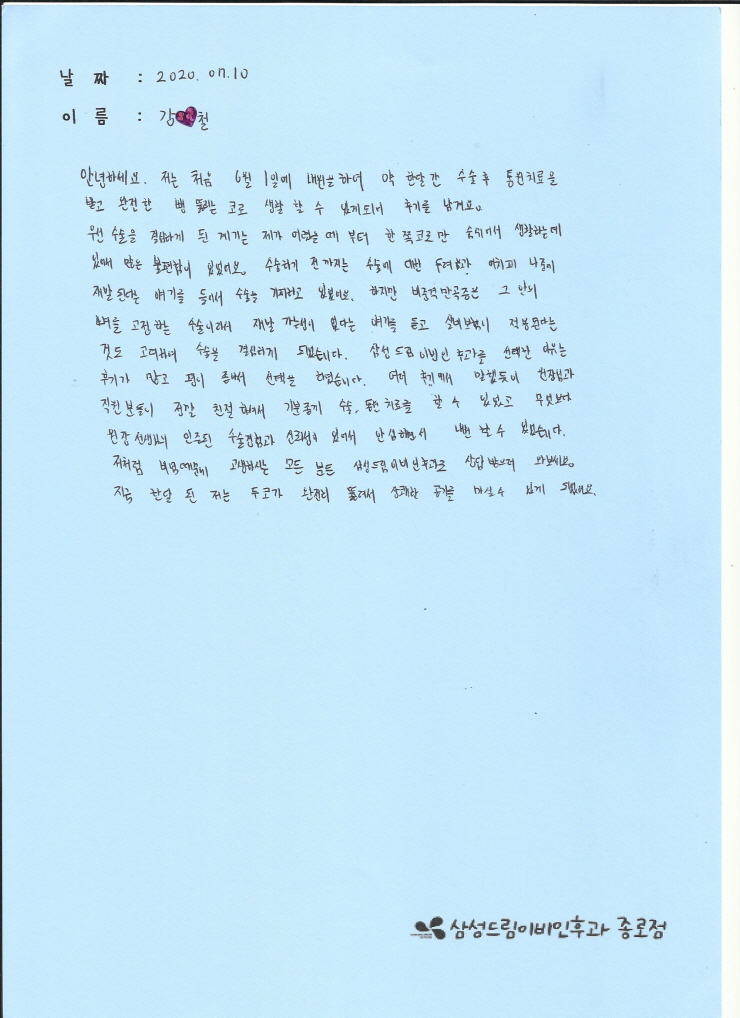 날 짜 : 2020. 07. 10
이 름 : 강 철
안녕하세요. 저는 처음 6월 1일에 내원을 하여 약 한달 간 수술 후 통원치료를
받고 완전한 뻥 뚫리는 코로 생활 할 수 있게되어 후기를 남겨요.
우선 수술을 결심하게 된 계기는 제가 어렸을 때 부터 한 쪽 코로만 숨쉬어서 생활하는데
있어서 많은 불편함이 있었어요. 수술하기 전 까지는 수술에 대한 두려움과 어차피 나중에
재발 된다는 얘기를 들어서 수술을 기피하고 있었어요. 하지만 비중격만곡증은 그 안의
뼈를 고정 하는 수술이라서 재발 가능성이 없다는 얘기를 듣고 실비보험이 적용된다는
것도 고려하여 수술을 결심하게 되었습니다. 삼성드림이비인후과를 선택한 이유는
후기가 많고 평이 좋아서 선택을 하였습니다. 여러 후기에서 말했듯이 원장님과
직원 분들이 정말 친절 하셔서 기분좋게 수술, 통원 치료를 할 수 있었고 무엇보다
원장 선생님의 인증된 수술경험과 신뢰성이 있어서 안심하면서 내원 할 수 있었습니다.
저처럼 비염때문에 고생하시는 모든 분들 삼성드림이비인후과로 상담 받으러 와보세요.
지금 한달 된 저는 두코가 완전히 뚫려서 상쾌한 공기를 마실 수 있게 되었어요.
삼성드림이비인후과 종로점